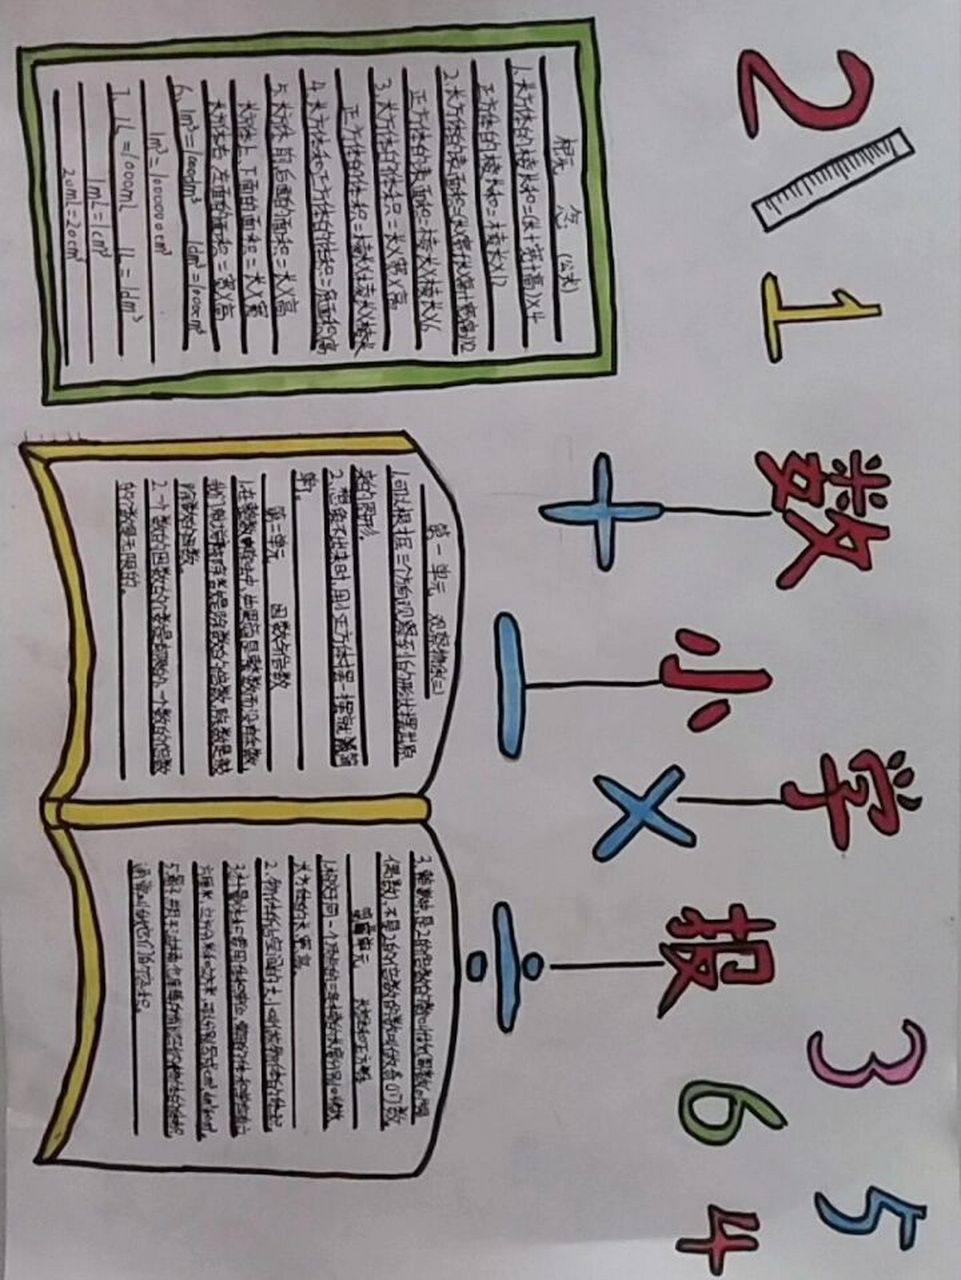 2 1 数 小 学 报 3 6 5 4
+ − × ÷
概 念 (公式)
1.长方体的棱长和=(长+宽+高)×4
正方体的棱长和=棱长×12
2.长方体的表面积=
正方体的表面积=棱长×棱长×6
3.长方体的体积=长×宽×高
正方体的体积=棱长×棱长×棱长
4.长方体和正方体的体积=底面积×高
5.长方体 前、后面的面积=长×高
长方体上、下面的面积=长×宽
长方体左、右面的面积=宽×高
6. 1m³=1000dm³ 1dm³=1000cm³
1m³=1000000cm³
7. 1L=1000mL 1L=1dm³
1mL=1cm³
20mL=20cm³
第一单元 观察物体(三)
1.可以根据三个方向观察到的形状摆出原
来的图形。
2.想象不出来时,用小正方体摆一摆就
第二单元 因数与倍数
1.在整数除法中,如果商是整数而没有余数,
我们就说被除数是除数的倍数,除数是被
除数的因数。
2.一个数的因数的个数是有限的,一个数的倍数
的个数是无限的。
3.整数中,是2的倍数的数叫作偶数
不是2的倍数的数叫做奇数。
单元 长方体和正方体
1.相交于同一个顶点的三条棱的长度分别叫做
长方体的长、宽、高。
2.物体所占空间的大小叫做物体的体积。
3.计量体积要用体积单位,常用的体积单位有立
方厘米、立方分米和立方米,可以分别写成cm³、dm³和m³。